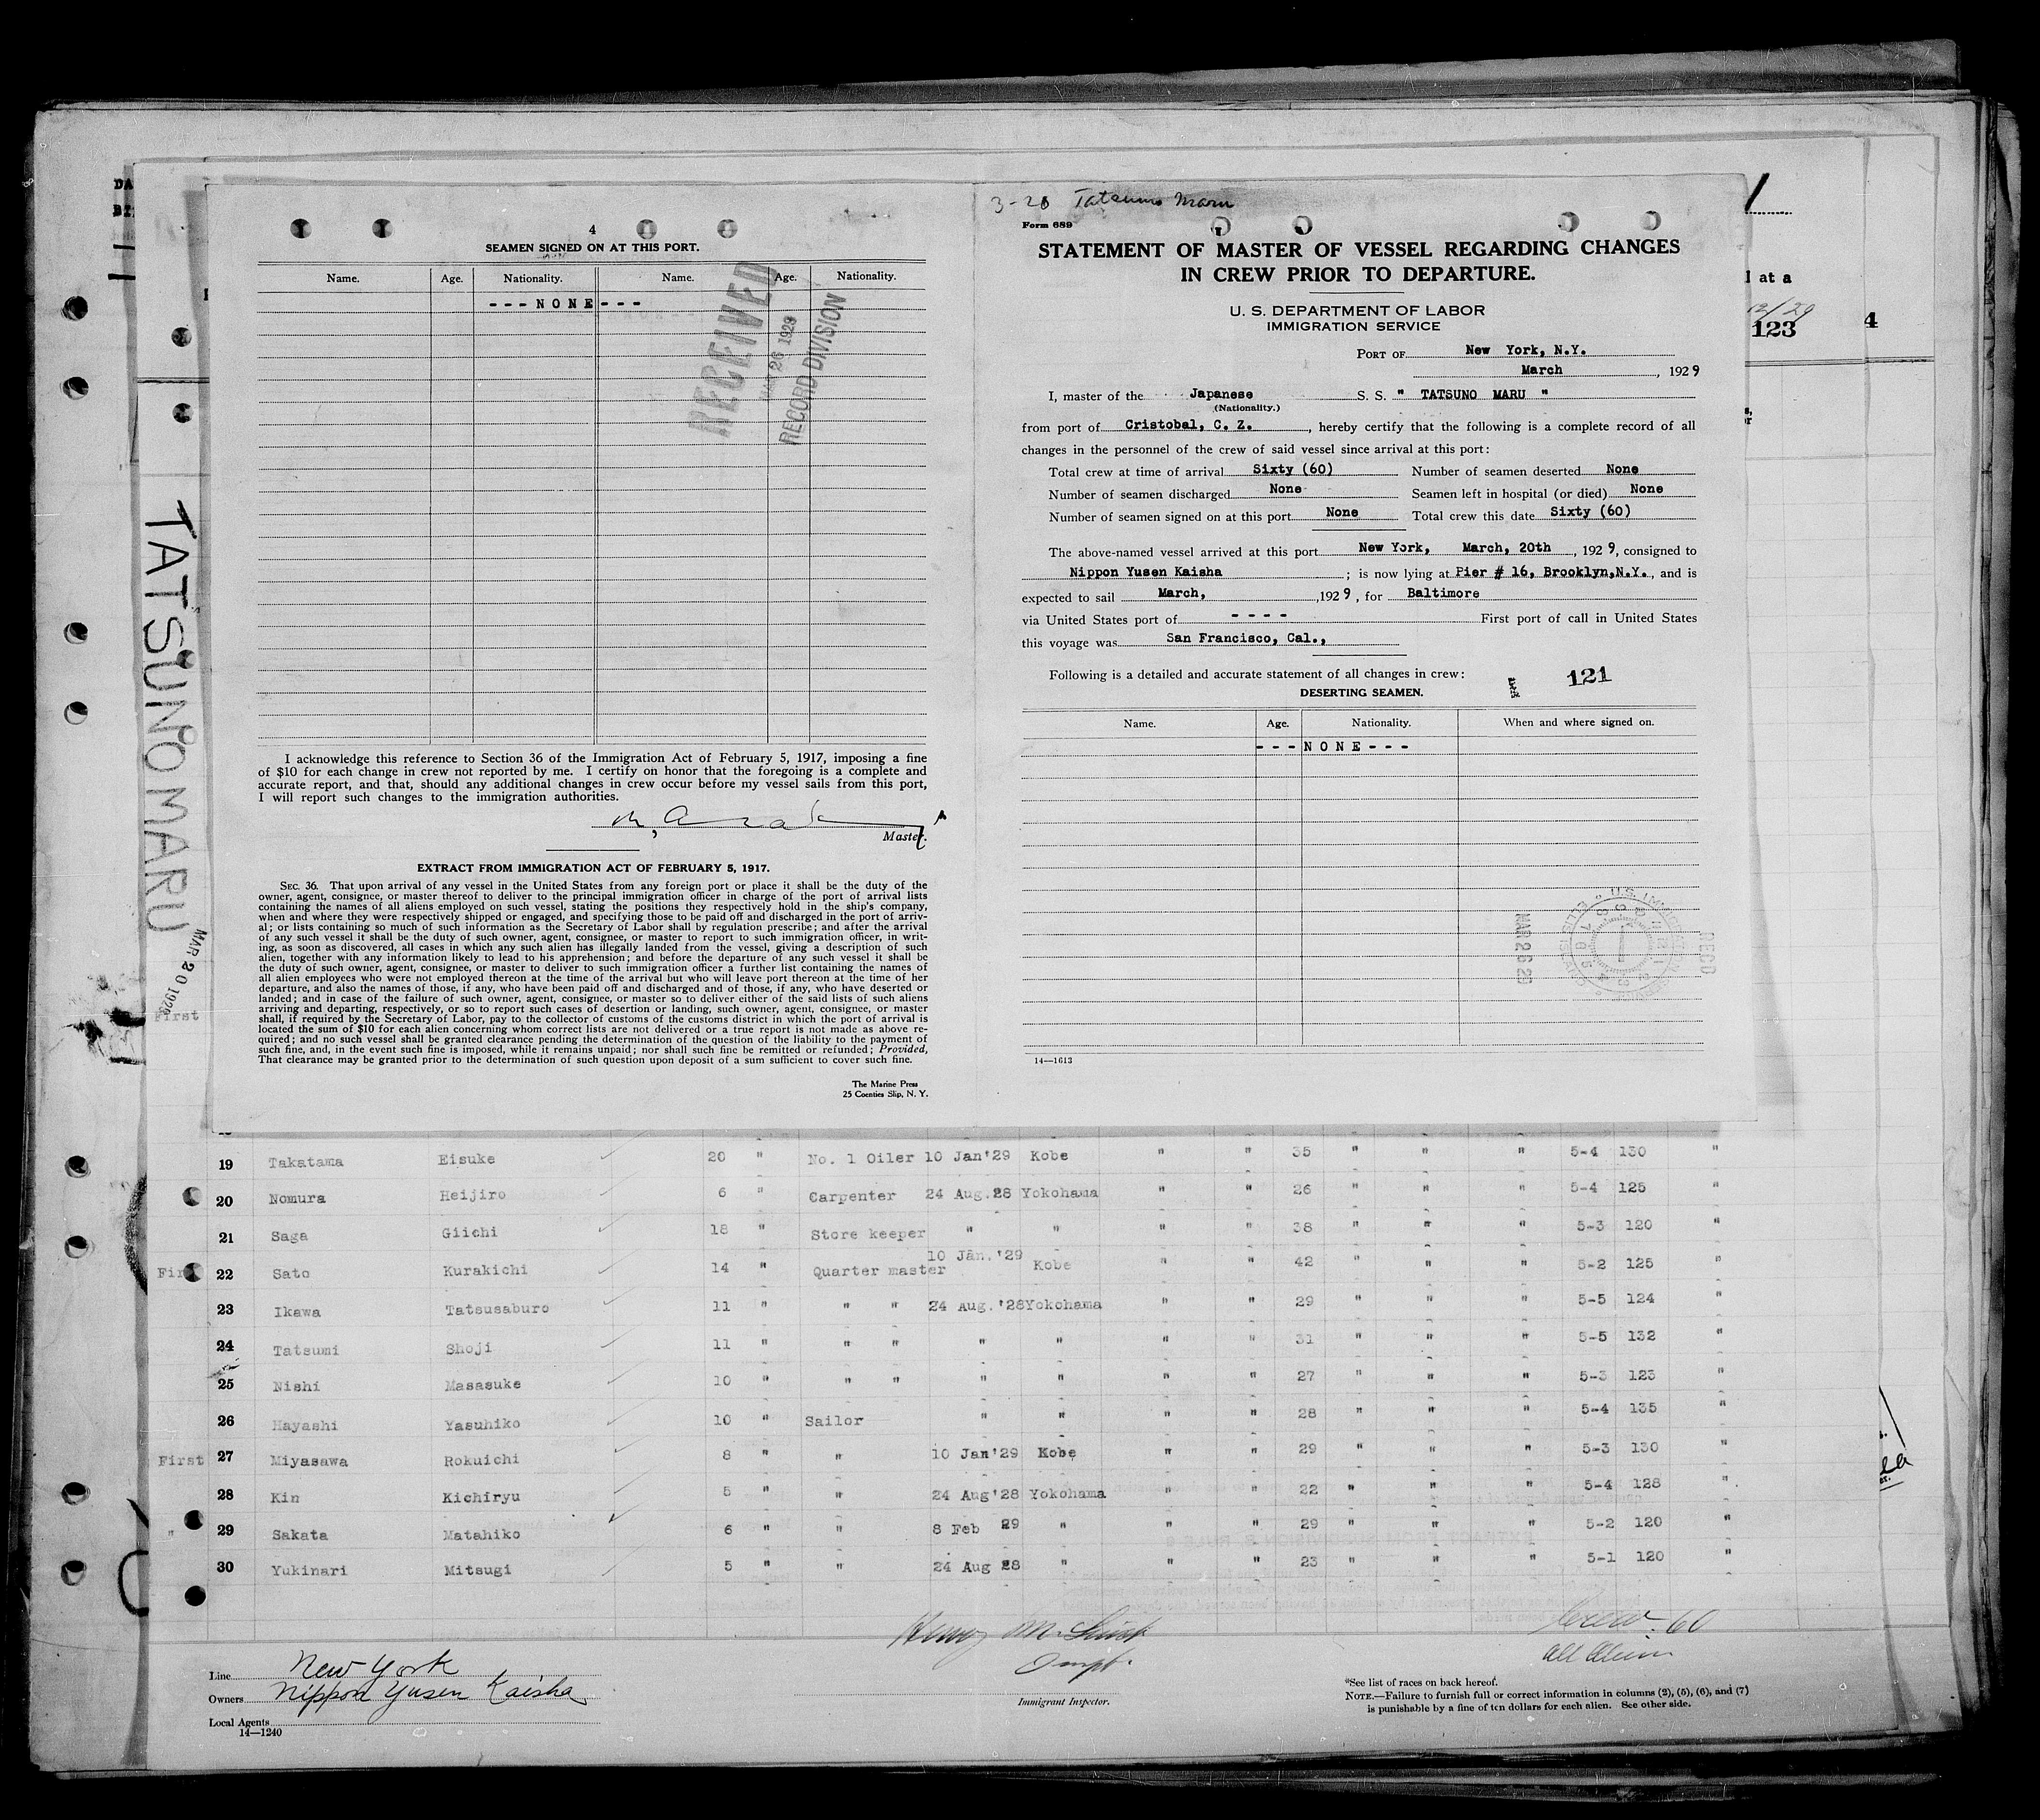 3-20 Tatsuno Maru
4
SEAMEN SIGNED ON AT THIS PORT.
Name. Age. Nationality. Name. Age. Nationality.
- - - N O N E - - -
RECEIVED
MAR 26 1929
RECORD DIVISION
I acknowledge this reference to Section 36 of the Immigration Act of February 5, 1917, imposing a fine
of $10 for each change in crew not reported by me. I certify on honor that the foregoing is a complete and
accurate report, and that, should any additional changes in crew occur before my vessel sails from this port,
I will report such changes to the immigration authorities.
Master.
EXTRACT FROM IMMIGRATION ACT OF FEBRUARY 5, 1917.
SEC. 36. That upon arrival of any vessel in the United States from any foreign port or place it shall be the duty of the
owner, agent, consignee, or master thereof to deliver to the principal immigration officer in charge of the port of arrival lists
containing the names of all aliens employed on such vessel, stating the positions they respectively hold in the ship's company,
when and where they were respectively shipped or engaged, and specifying those to be paid off and discharged in the port of arriv-
al; or lists containing so much of such information as the Secretary of Labor shall by regulation prescribe; and after the arrival
of any such vessel it shall be the duty of such owner, agent, consignee, or master to report to such immigration officer, in writ-
ing, as soon as discovered, all cases in which any such alien has illegally landed from the vessel, giving a description of such
alien, together with any information likely to lead to his apprehension; and before the departure of any such vessel it shall be
the duty of such owner, agent, consignee, or master to deliver to such immigration officer a further list containing the names of
all alien employees who were not employed thereon at the time of the arrival but who will leave port thereon at the time of her
departure, and also the names of those, if any, who have been paid off and discharged and of those, if any, who have deserted or
landed; and in case of the failure of such owner, agent, consignee, or master so to deliver either of the said lists of such aliens
arriving and departing, respectively, or so to report such cases of desertion or landing, such owner, agent, consignee, or master
shall, if required by the Secretary of Labor, pay to the collector of customs of the customs district in which the port of arrival is
located the sum of $10 for each alien concerning whom correct lists are not delivered or a true report is not made as above re-
quired; and no such vessel shall be granted clearance pending the determination of the question of the liability to the payment of
such fine, and, in the event such fine is imposed, while it remains unpaid; nor shall such fine be remitted or refunded; Provided,
That clearance may be granted prior to the determination of such question upon deposit of a sum sufficient to cover such fine.
The Marine Press
25 Coenties Slip, N. Y.
Form 689
STATEMENT OF MASTER OF VESSEL REGARDING CHANGES
IN CREW PRIOR TO DEPARTURE.
U. S. DEPARTMENT OF LABOR
IMMIGRATION SERVICE
PORT OF New York, N.Y.
March, 1929
I, master of the Japanese S. S. " TATSUNO MARU "
(Nationality.)
from port of Cristobal, C. Z., hereby certify that the following is a complete record of all
changes in the personnel of the crew of said vessel since arrival at this port:
Total crew at time of arrival Sixty (60) Number of seamen deserted None
Number of seamen discharged None Seamen left in hospital (or died) None
Number of seamen signed on at this port None Total crew this date Sixty (60)
The above-named vessel arrived at this port New York, March, 20th, 1929, consigned to
Nippon Yusen Kaisha; is now lying at Pier # 16, Brooklyn,N.Y., and is
expected to sail March, ,1929, for Baltimore
via United States port of - - - - First port of call in United States
this voyage was San Francisco, Cal.,
Following is a detailed and accurate statement of all changes in crew: 121
DESERTING SEAMEN.
Name. Age. Nationality. When and where signed on.
- - - N O N E - - -
MAR 26 29
RECD
14—1613
DA
l at a
12/29
123 4
TATSUNO MARU
MAR 20 1929
First
19 Takatama Eisuke 20 " No. 1 Oiler 10 Jan'29 Kobe " " 35 " " " 5-4 130 "
20 Nomura Heijiro 6 " Carpenter 24 Aug.28 Yokohama " " 26 " " " 5-4 125 "
21 Saga Giichi 18 " Store keeper " " " " 38 " " " 5-3 120 "
22 Sato Kurakichi 14 " Quarter master 10 Jan.'29 Kobe " " 42 " " " 5-2 125 "
23 Ikawa Tatsusaburo 11 " " " 24 Aug.'28 Yokohama " " 29 " " " 5-5 124 "
24 Tatsumi Shoji 11 " " " " " " " 31 " " " 5-5 132 "
25 Nishi Masasuke 10 " " " " " " " 27 " " " 5-3 123 "
26 Hayashi Yasuhiko 10 " Sailor " " " " 28 " " " 5-4 135 "
First 27 Miyasawa Rokuichi 8 " " 10 Jan'29 Kobe " " 29 " " " 5-3 130 "
28 Kin Kichiryu 5 " " 24 Aug'28 Yokohama " " 22 " " " 5-4 128 "
" 29 Sakata Matahiko 6 " " 8 Feb 29 " " " 29 " " " 5-2 120 "
30 Yukinari Mitsugi 5 " " 24 Aug 28 " " " 23 " " " 5-1 120 "
Crew-60
All Alien
Line New York
Owners Nippon Yusen Kaisha
Local Agents
14—1240
Immigrant Inspector.
*See list of races on back hereof.
NOTE.—Failure to furnish full or correct information in columns (2), (5), (6), and (7)
is punishable by a fine of ten dollars for each alien. See other side.